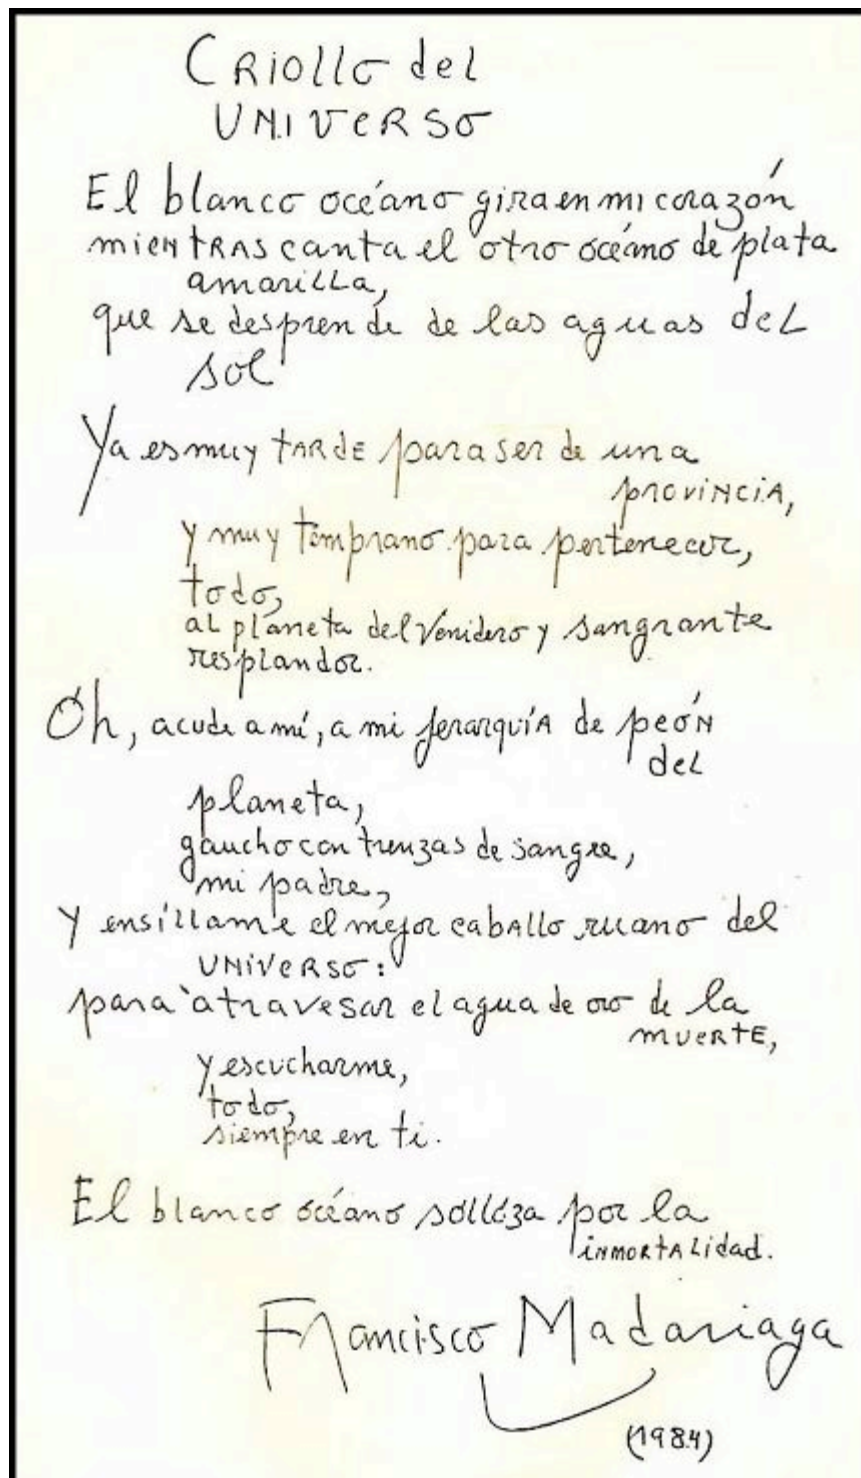 CRiOllo del
UNIVeRSo
El blanco océano gira en mi corazón
mientras canta el otro océano de plata
amarilla,
que se desprende de las aguas del
sol
Ya es muy tarde para ser de una
provincia,
y muy temprano para pertenecer,
todo,
al planeta del Venidero y sangrante
resplandor.
Oh, acude a mí, a mi jerarquía de peón
del
planeta,
gaucho con trenzas de sangre,
mi padre,
Y ensíllame el mejor caballo ruano del
UNIVeRSo:
para atravesar el agua de oro de la
muerte,
y escucharme,
todo,
siempre en ti.
El blanco océano solloza por la
inmortalidad.
Francisco Madariaga
(1984)